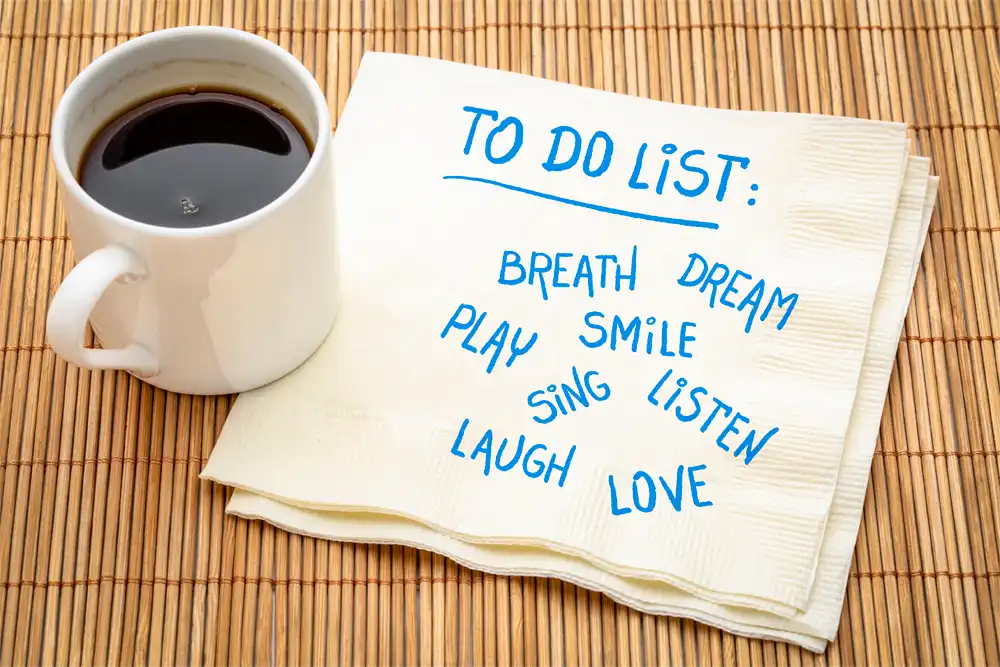 TO DO LiST:
BREATH DREAM
PLAY SMiLE
SiNG LiSTEN
LAUGH LOVE